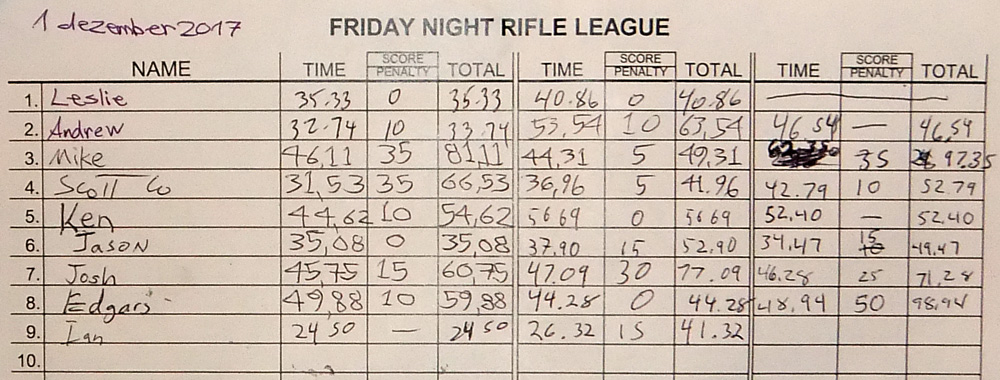 1 dezember 2017 FRIDAY NIGHT RIFLE LEAGUE
NAME TIME SCORE PENALTY TOTAL TIME SCORE PENALTY TOTAL TIME SCORE PENALTY TOTAL
1. Leslie 35.33 0 35.33 40.86 0 40.86
2. Andrew 32.74 10 33.74 53,54 10 63,54 46,54 — 46,54
3. Mike 46,11 35 81,11 44,31 5 49,31 35 97.35
4. Scott Co 31,53 35 66,53 36,96 5 41.96 42.79 10 52.79
5. Ken 44,62 10 54,62 56 69 0 56 69 52,40 — 52.40
6. Jason 35,08 0 35,08 37.90 15 52.90 34,47 15 49,47
7. Josh 45,75 15 60,75 47.09 30 77.09 46.28 25 71,28
8. Edgars 49,88 10 59,88 44.28 0 44.28 48,94 50 98,94
9. Ian 24 50 — 24 50 26.32 15 41.32
10.